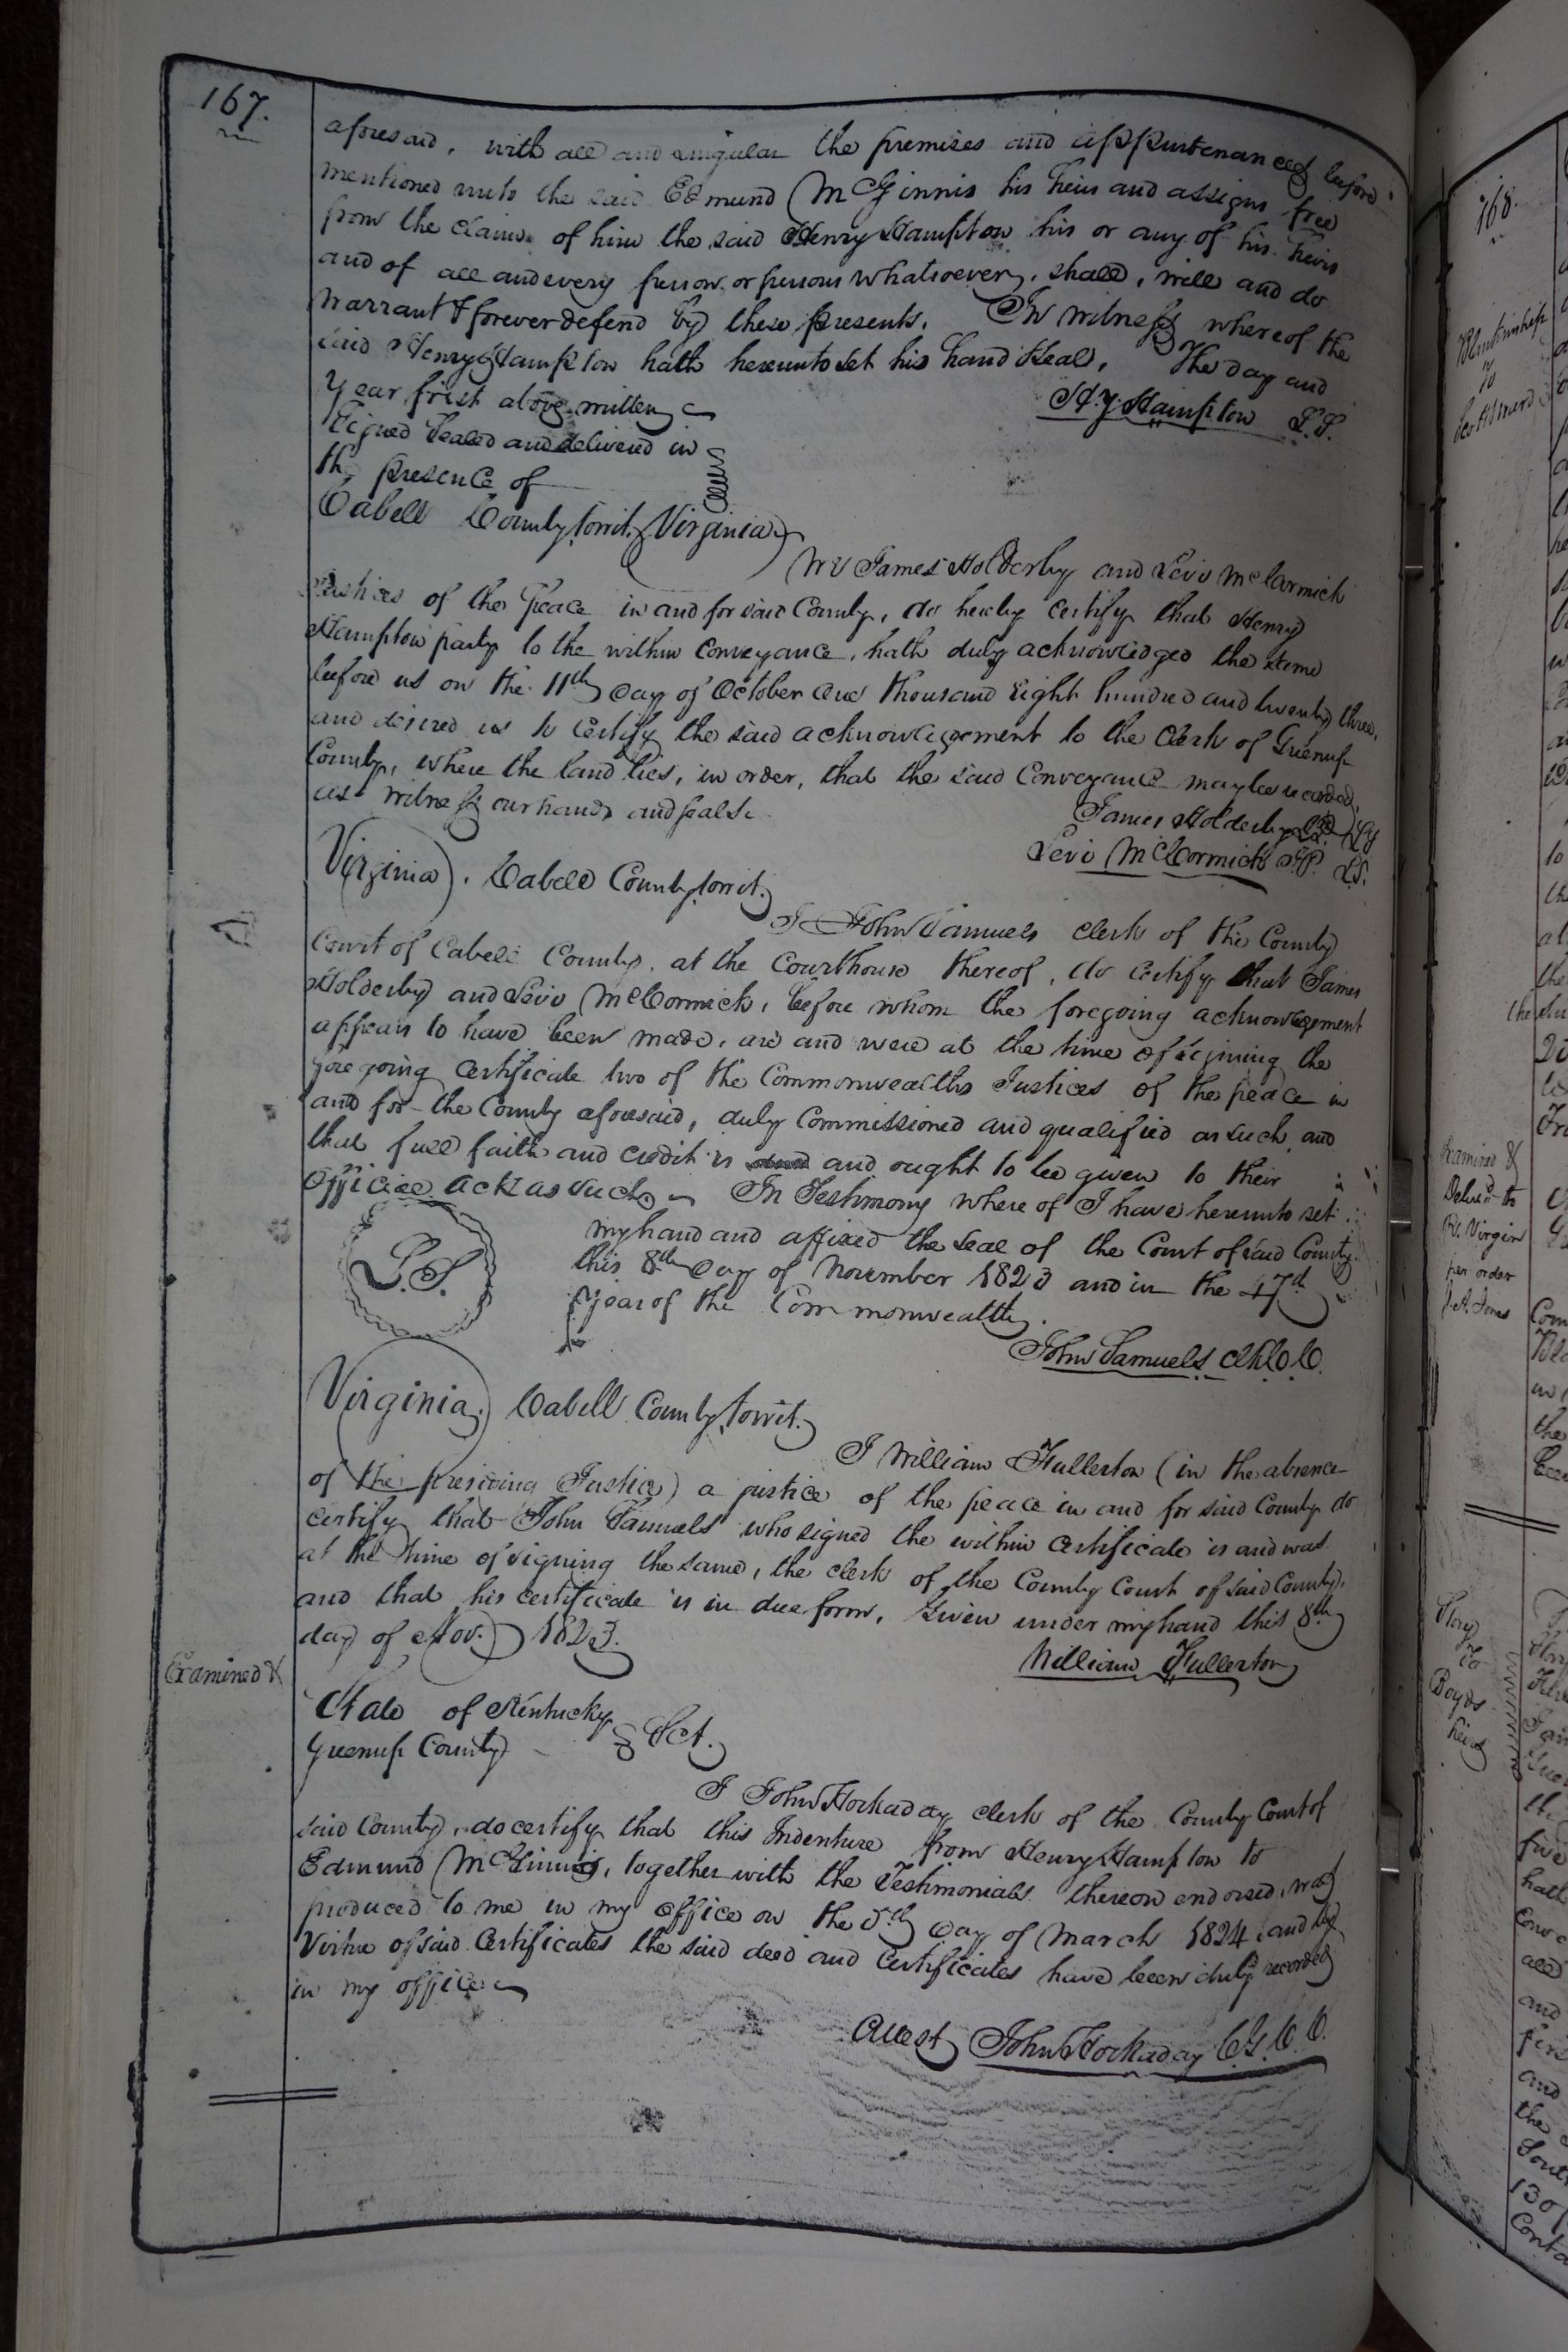 167.
aforesaid, with all and singular the premises and appurtenances before
mentioned unto the said Edmund McGinnis his heirs and assigns free
from the claim of him the said Henry Hampton his or any of his heirs
and of all and every person or persons whatsoever, shall, will and do
warrant & forever defend by these presents. In witness whereof the
said Henry Hampton hath hereunto set his hand & seal, The day and
Year first above written
Hy. Hampton L.S.
Signed Sealed and delivered in
the presence of
Cabell County towit. Virginia
We James Holderby and Levi McCormick
Justices of the Peace in and for said County, do hereby certify that Henry
Hampton party to the within Conveyance, hath duly acknowledged the same
before us on the 11th day of October One thousand Eight hundred and twenty three,
and desired us to Certify the said acknowledgement to the Clerk of Greenup
County, where the land lies, in order, that the said Conveyance may be recorded,
as witness our hands and seals.
James Holderby
Levi McCormick J.P. L.S.
Virginia. Cabell County, towit.
I John Samuels Clerk of the County
Court of Cabell County, at the Courthouse thereof, do Certify that James
Holderby and Levi McCormick, before whom the foregoing acknowledgement
appears to have been made, are and were at the time of signing the
foregoing Certificate two of the Commonwealths Justices of the peace in
and for the County aforesaid, duly Commissioned and qualified as such, and
that full faith and credit is and ought to be given to their
official acts as such. In Testimony where of I have hereunto set
my hand and affixed the seal of the Court of said County.
this 8th day of November 1823 and in the 47th
Year of the Commonwealth.
L.S.
John Samuels Clk C. C.
Virginia. Cabell County, towit.
I William Fullerton (in the absence
of the presiding Justice) a justice of the peace in and for said County do
certify that John Samuels who signed the within Certificate is and was
at the time of signing the same, the clerk of the County Court of said County,
and that his certificate is in due form. Given under my hand this 8th
day of Nov. 1823.
William Fullerton
Examined &
State of Kentucky
Greenup County Sct.
I John Hockaday clerk of the County Court of
said County, do certify that this Indenture from Henry Hampton to
Edmund McGinnis, together with the Testimonials thereon endorsed, was
produced to me in my office on the 5th day of March 1824 and by
Virtue of said Certificates the said deed and Certificates have been duly recorded
in my office
Attest John Hockaday C.G.C.C.
168.
to
Examined &
Deliver'd to
R. Virgin
per order
Boyds
heirs